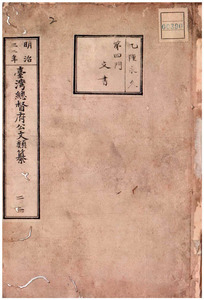 乙種永久
第四門
文書
明治
三二年
臺灣總督府公文類纂